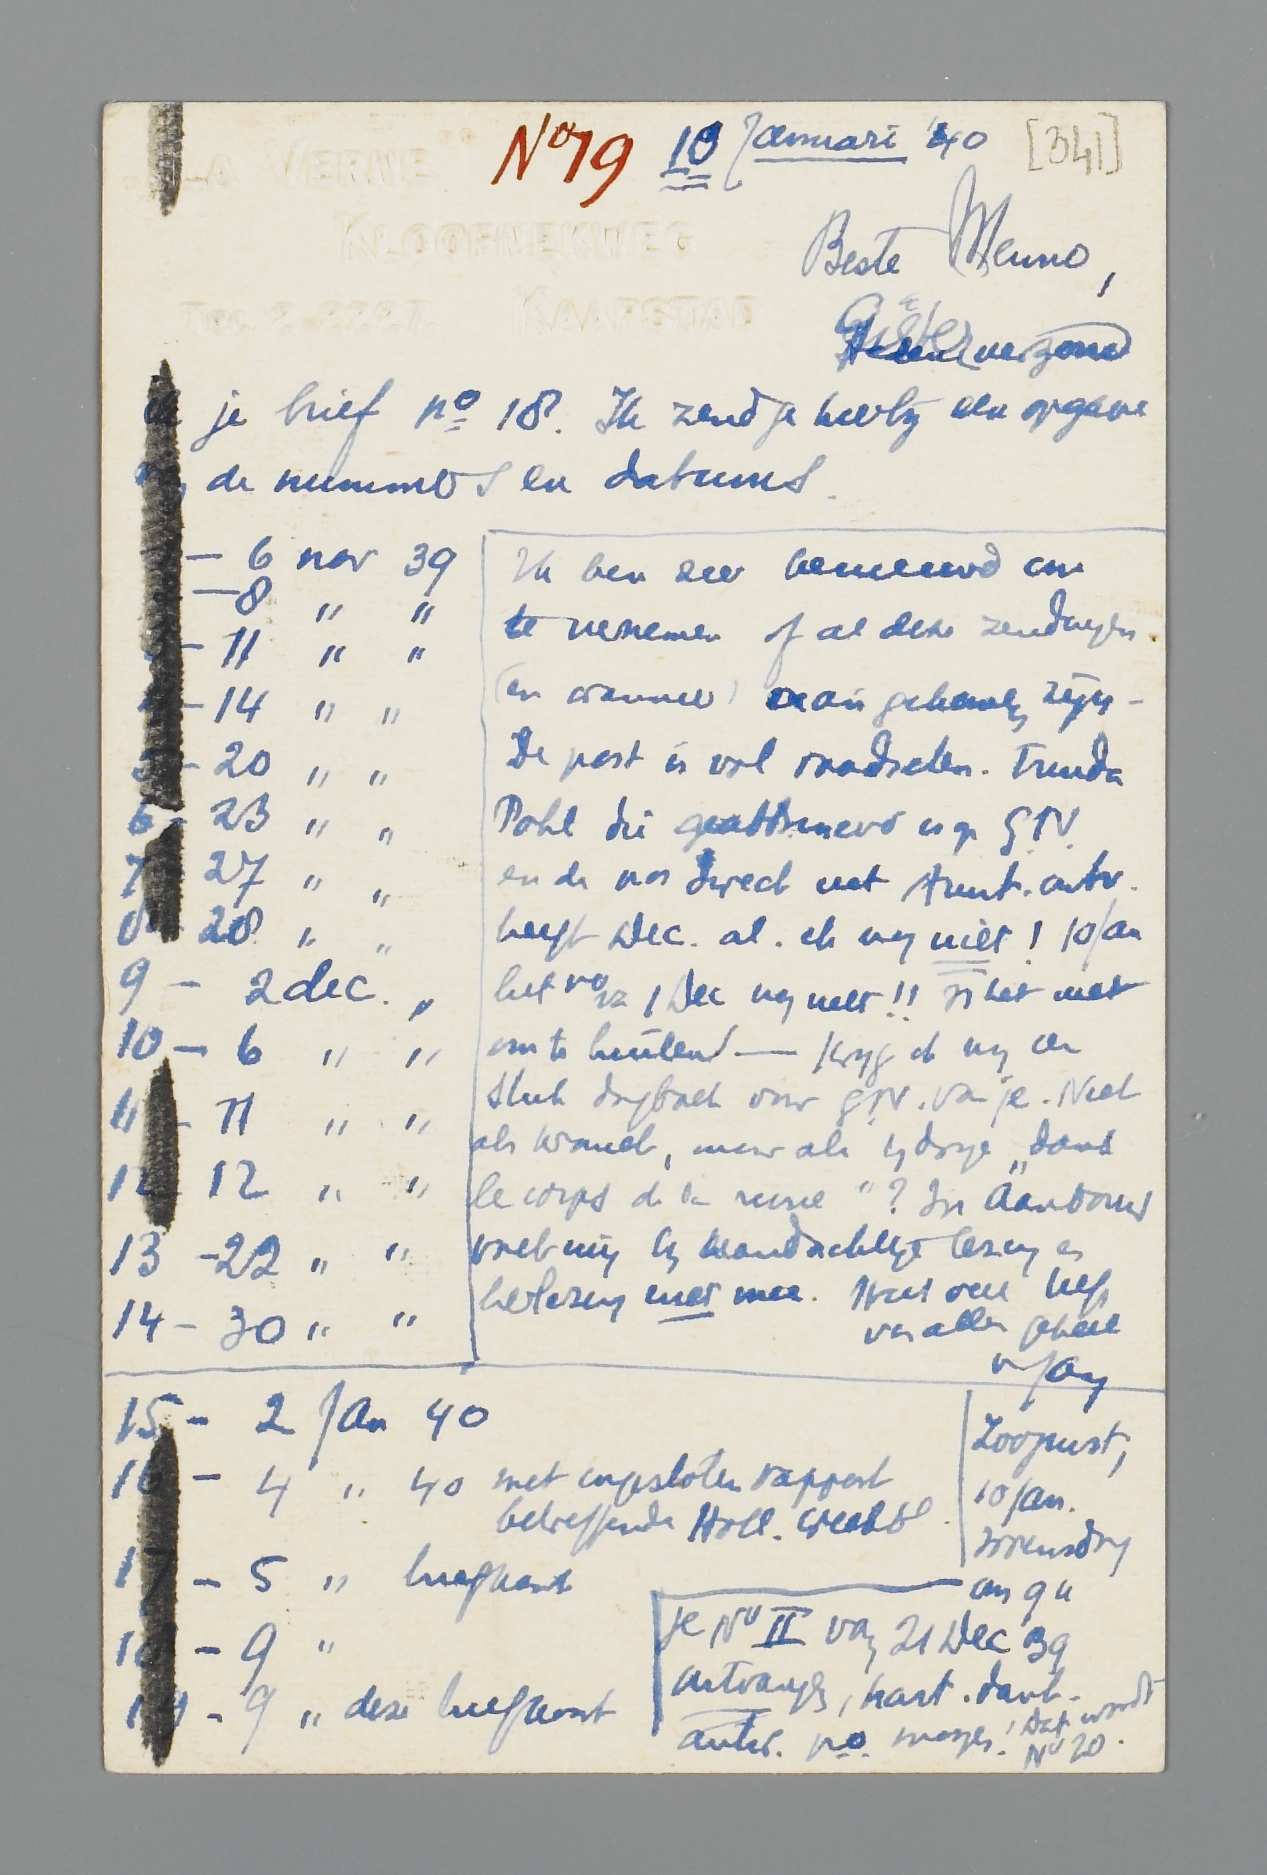 No 19 10 Januari '40 [341]
"LA VERNE"
KLOOFNEKWEG
TEL. 2-3227. KAAPSTAD
Beste Menno,
Gister verzond
ik je brief no 18. Ik zend je hierbij een opgave
de nummers en datums.
— 6 nov 39
— 8 " "
— 11 " "
— 14 " "
5 — 20 " "
6 — 23 " "
7 27 " "
8 — 28 " "
9 — 2 dec. "
10 — 6 " "
11 — 11 " "
12 12 " "
13 — 22 " "
14 — 30 " "
Ik ben zeer benieuwd om
te vernemen of al deze zendingen
(en wanneer) aangekomen zijn —
De post is vol raadselen. Truida
Pohl die geabonneerd is op GN
en de nos direct uit Amst. ontv.
heeft Dec. al. ik nog niet! 10 Jan
het no van 1 Dec nog niet!! Is het niet
om te huilen! — Krijg ik nog een
stuk voor GN. van je. Niet
als kroniek, maar als bijdrage "dans
le corps de la revue"? In
bij aandachtige lezing en
herlezing niet mee. Hart. veel liefs
van allen geheel
v Jan
15 — 2 Jan 40
16 — 4 " 40 met ingesloten rapport
betreffende Holl. Weekbl.
17 — 5 " briefkaart
18 — 9 "
19 — 9 " deze briefkaart
Zoojuist,
10 Jan.
woensdag
om 9 u
je No II van 21 Dec 39
ontvangen, hart. dank.
antw. no. morgen! Dat wordt
No 20.